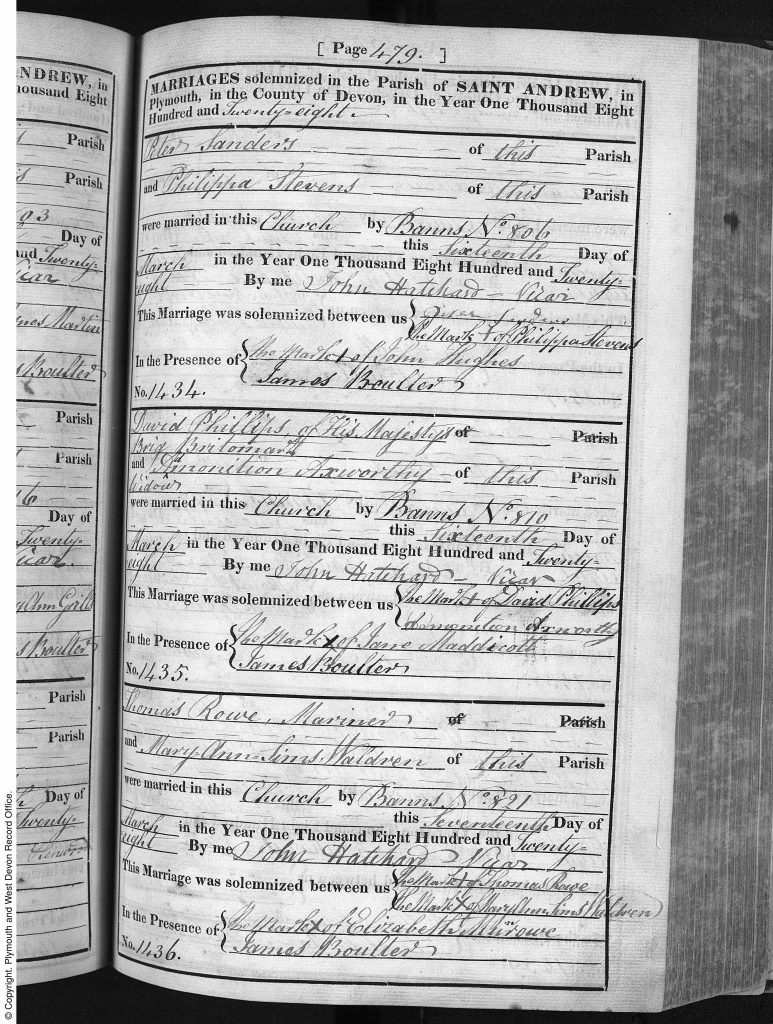 [ Page 479. ]
MARRIAGES solemnized in the Parish of SAINT ANDREW, in
Plymouth, in the County of Devon, in the Year One Thousand Eight
Hundred and Twenty=eight.
Peter Sanders of this Parish
and Philippa Stevens of this Parish
were married in this Church by Banns No. 806
this Sixteenth Day of
March in the Year One Thousand Eight Hundred and Twenty=
eight By me John Hatchard - Vicar
This Marriage was solemnized between us
The Mark + of Philippa Stevens
In the Presence of The Mark + of John Hughes
James Boulter
No. 1434.
David Phillips of His Majestys of Parish
Brig Britomart
and Axworthy of this Parish
Widow
were married in this Church by Banns No. 810
this Sixteenth Day of
March in the Year One Thousand Eight Hundred and Twenty=
eight By me John Hatchard - Vicar
This Marriage was solemnized between us The Mark + of David Phillips
In the Presence of The Mark + of Jane Maddicott
James Boulter
No. 1435.
Thomas Rowe, Mariner of Parish
and Mary Ann Sims Waldren of this Parish
were married in this Church by Banns No. 821
this Seventeenth Day of
March in the Year One Thousand Eight Hundred and Twenty=
eight By me John Hatchard Vicar
This Marriage was solemnized between us The Mark + of Thomas Rowe
The Mark + of Mary Ann Sims Waldren
In the Presence of The Mark + of Elizabeth
James Boulter
No. 1436.
NDREW, in
housand Eight
Parish
Parish
Day of
and Twenty=
Vicar
Martin
Boulter
Parish
Parish
Day of
Twenty=
Vicar.
Ann Grills
Boulter
Parish
Parish
Day of
Twenty=
© Copyright. Plymouth and West Devon Record Office.